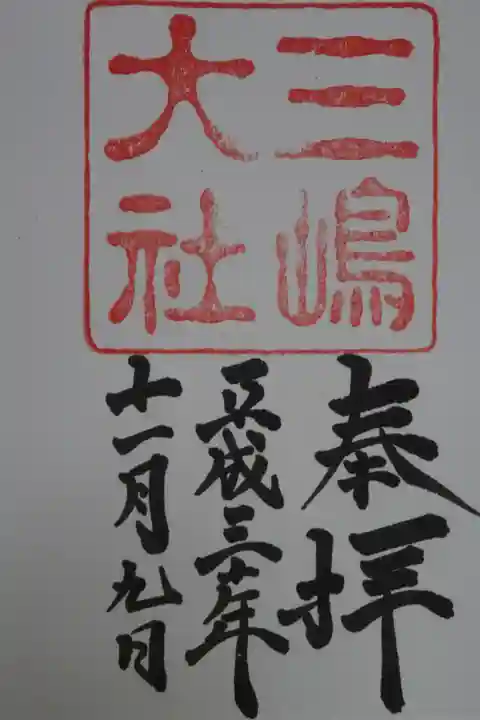 三嶋
大社
奉拝
平成三十年
十一月九日